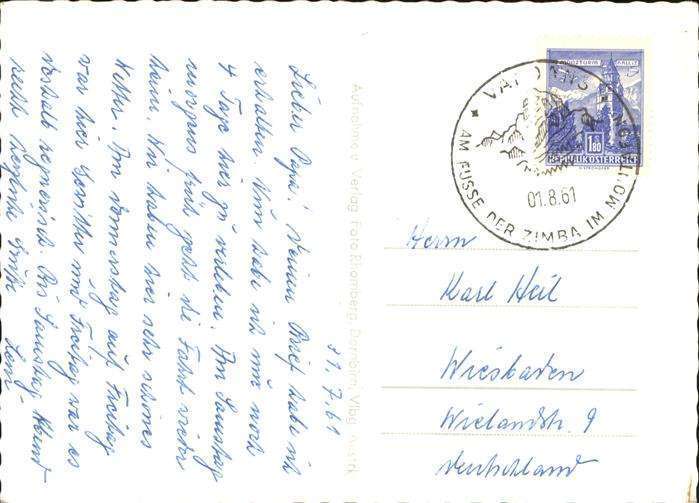 31.7.61
Lieber Papa! Deinen Brief habe ich
erhalten. Nun habe ich nur noch
4 Tage hier zu verleben. Am Samstag
morgens früh geht die Fahrt wieder
heim. Wir haben hier sehr schönes
Wetter. Am Donnerstag auf Freitag
war hier Gewitter und Freitag war es
deshalb regnerisch. Bis Samstag Abend
recht herzliche Grüße
Aufnahme u. Verlag Foto Blomberg, Dornbirn, Vlbg. Austria
VANDANS
AM FUSSE DER ZIMBA IM MONTAFON
01.8.61
1.80
REPUBLIK ÖSTERREICH
Herrn
Karl Heil
Wiesbaden
Wielandstr. 9
Deutschland